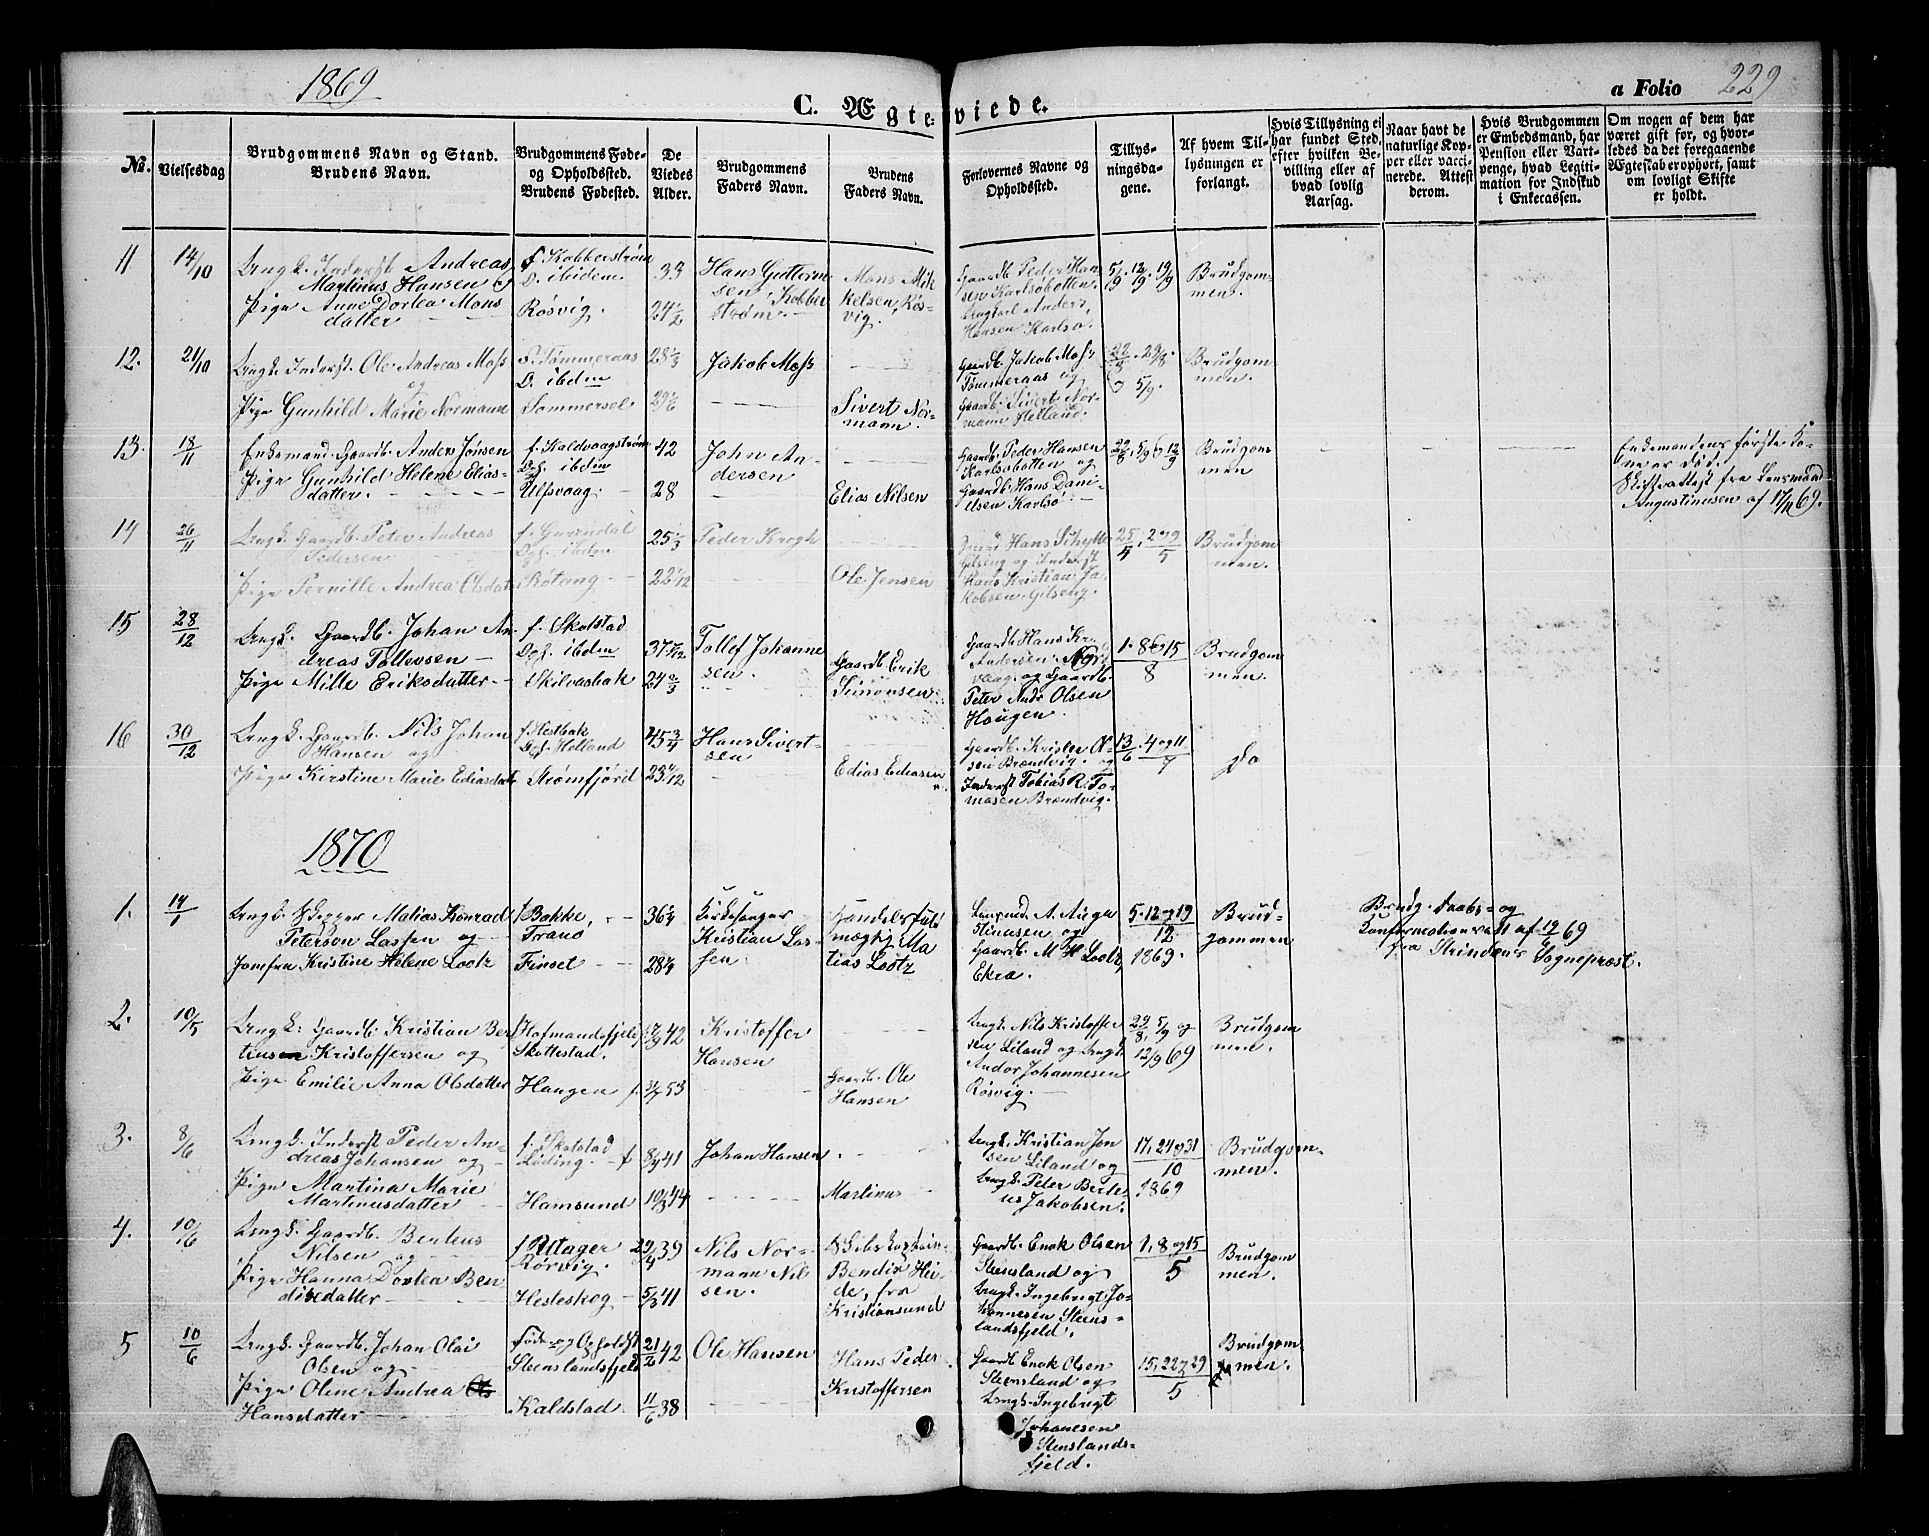 1869
C. Ægteviede.
a Folio 229
No.
Vielsesdag
Brudgommens Navn og Stand.
Brudens Navn.
Brudgommens Føde-
og Opholdssted.
Brudens Fødested.
De
Viedes
Alder.
Brudgommens
Faders Navn.
Brudens
Faders Navn.
Forlovernes Navne og
Opholdssted.
Tillys-
ningsda-
gene.
Af hvem Til-
lysningen er
forlangt.
Hvis Tillysning ei
har fundet Sted,
efter hvilken Be-
villing eller af
hvad lovlig
Aarsag.
Naar havt de
naturlige Kop-
per eller vacci-
nerede. Attest
derom.
Hvis Brudgommen
er Embedsmand, har
Pension eller Vart-
penge, hvad Legiti-
mation for Indskud
i Enkecassen.
Om nogen af dem har
været gift før, og hvor-
ledes da det foregaaende
Ægteskab ophørt, samt
om lovligt Skifte
er holdt.
11 14/10
Ungk. Inderst Andreas
Martinus Hansen og
Pige Anne Dortea Mons
datter
f. Kobberstrøm
O. ibidem.
Røsvig.
33
24 1/2
Hans Gutterm
sen Kobber
strøm.
Mons Mik
kelsen, Røs-
vig.
Gaardb. Peder Han
sen Karlsøbotten.
Ungkarl Anders
Hansen Karlsø.
5/9. 12/9. 19/9
Brudgom-
men.
12. 21/10
Ungk. Inderst. Ole Andreas Moss
og
Pige Gunhild Marie Normann
f. Tømmeraas
O. ibdm
Sommersel
28 1/3
29 1/6
Jakob Moss
Sivert Nor-
mann.
Gaardb. Jakob Moss
Tømmeraas og
Gaardb. Sivert Nor-
mann Helland.
22/8. 29/8.
og 5/9.
Brudgom
men.
13. 18/11
Enkemand Gaardb. Anders Jonsen
Pige Gunhild Helene Elias-
datter.
f. Kaldvaagstrøm
Og. ibdm
Ulfsvaag.
42
28
John An-
dersen
Elias Nilsen
Gaardb. Peder Hansen
Karlsøbotten og
Gaardb. Hans Dani-
elsen Karlsø.
22/8, 5/9 og 12/9
Brudgom
men
Enkemandens første Ko-
ne er død.
Skifteattest fra Lensmand
Augustinusen af 17/11 69.
14 26/11
Ungk. Gaardb. Peter Andreas
Pedersen
Pige Pernille Andrea Olsdatr
Og. ibdm
Røtang
25 1/3
22 1/12
Peder Krogh
Ole Jensen
Gaard Hans Schytte
Gilseng og Inderst
Hans Kristian Ja
kobsen Gilseng.
25/4, 2 og 9/5
Brudgom
men.
15 28/12
Ungk. Gaardb. Johan An-
dreas Tollevsen
Pige Mille Eriksdatter
f. Skotstad
Og. ibdm
Skilvasbak
24 2/3
Tollef Johanne
sen.
Gaardb. Erik
Simonsen
Gaardb. Hans Kr.
Andersen Nord
vaag. og Gaardb.
Peter Andr Olsen
Haugen.
1. 8 og 15
8
Brudgom
men.
16 30/12
Ungk. Gaardb. Nils Johan
Hansen og
Pige Kirstine Marie Ediasdatr
f. Hestbak
Og. Helland
Strømfjord
45 3/4
Hans Sivert-
sen
Edias Ediasen
Gaardb. Krister Ol-
sen Brændvig. og
Inderst Tobias R. To-
masen Brændvig.
13/6. 4 og 11/7
Do
1870
1. 14/1
Ungk. Skipper Matias Konrad
Peterson Lassen og
Jomfru Kristine Helene Lootz
f Bakke,
Tranø
Finset
36 1/4
28 1/4
Kirkesanger
Kristian Las-
sen.
Handelsfuld
mægtig Ma
tias Lootz
Lensmd. A. Augu
stinusen og
Gaardb. M H Lootz,
Ekra.
5. 12 og 19
12
1869.
Brud-
gommen
Brudg. Daabs- og
Konfirmationsatt af 69
fra Strindens Sognepræst.
2. 10/5
Ungk: Gaardb: Kristian Ber
tinsen Kristoffersen og
Pige Emilie Anna Olsdatter
Hofmandsfjeld
Skottestad.
Haugen
42
53
Kristoffer
Hansen
Gaardb. Ole
Hansen
Ungk. Nils Kristoffer
sen Liland og Ungk
Andor Johannesen
Røsvig.
29/8, 5/9 og
12/9 69
Brudgom
men.
3. 8/6
Ungk. Inderst Peder An-
dreas Johansen og
Pige Martina Marie
Martinusdatter
f. Skotstad
Løding.
Hamsund
41
44
Johan Hansen
Martinus
Ungk. Kristian Jon
sen Liland og
Ungk. Peter Berte-
us Jakobsen.
17, 24 og 31
10
1869
Brudgom-
men.
4. 10/6
Ungk. Gaardb. Benteus
Nilsen og
Pige Hanna Dortea Ben
diksdatter
f Uttager
Rørvig.
Hesteskog
29/4 39
5/3 41
Nils Nor-
mann Nil
sen.
Skibskaptain
Bendix Hei-
de, fra
Kristiansund
Gaardb. Enok Olsen
Steensland og
Ungk. Ingebrigt Jo-
hannesen Steens-
landsfjeld.
1, 8 og 15
5
Brudgom
men.
5 10/6
Ungk. Gaardb. Johan Olai
Olsen og
Pige Oline Andrea Ols
Hansdatter
Føde- og Opholdst
Steenslandsfjeld
Kaldstad
21/2 42
11/6 38
Ole Hansen
Hans Peder
Kristoffersen
Gaardb Enok Olsen
Steensland og
Ungk. Ingebrigt
Johanesen
Stenslands-
fjeld.
15, 22 og 29
5
Brudgom
men.